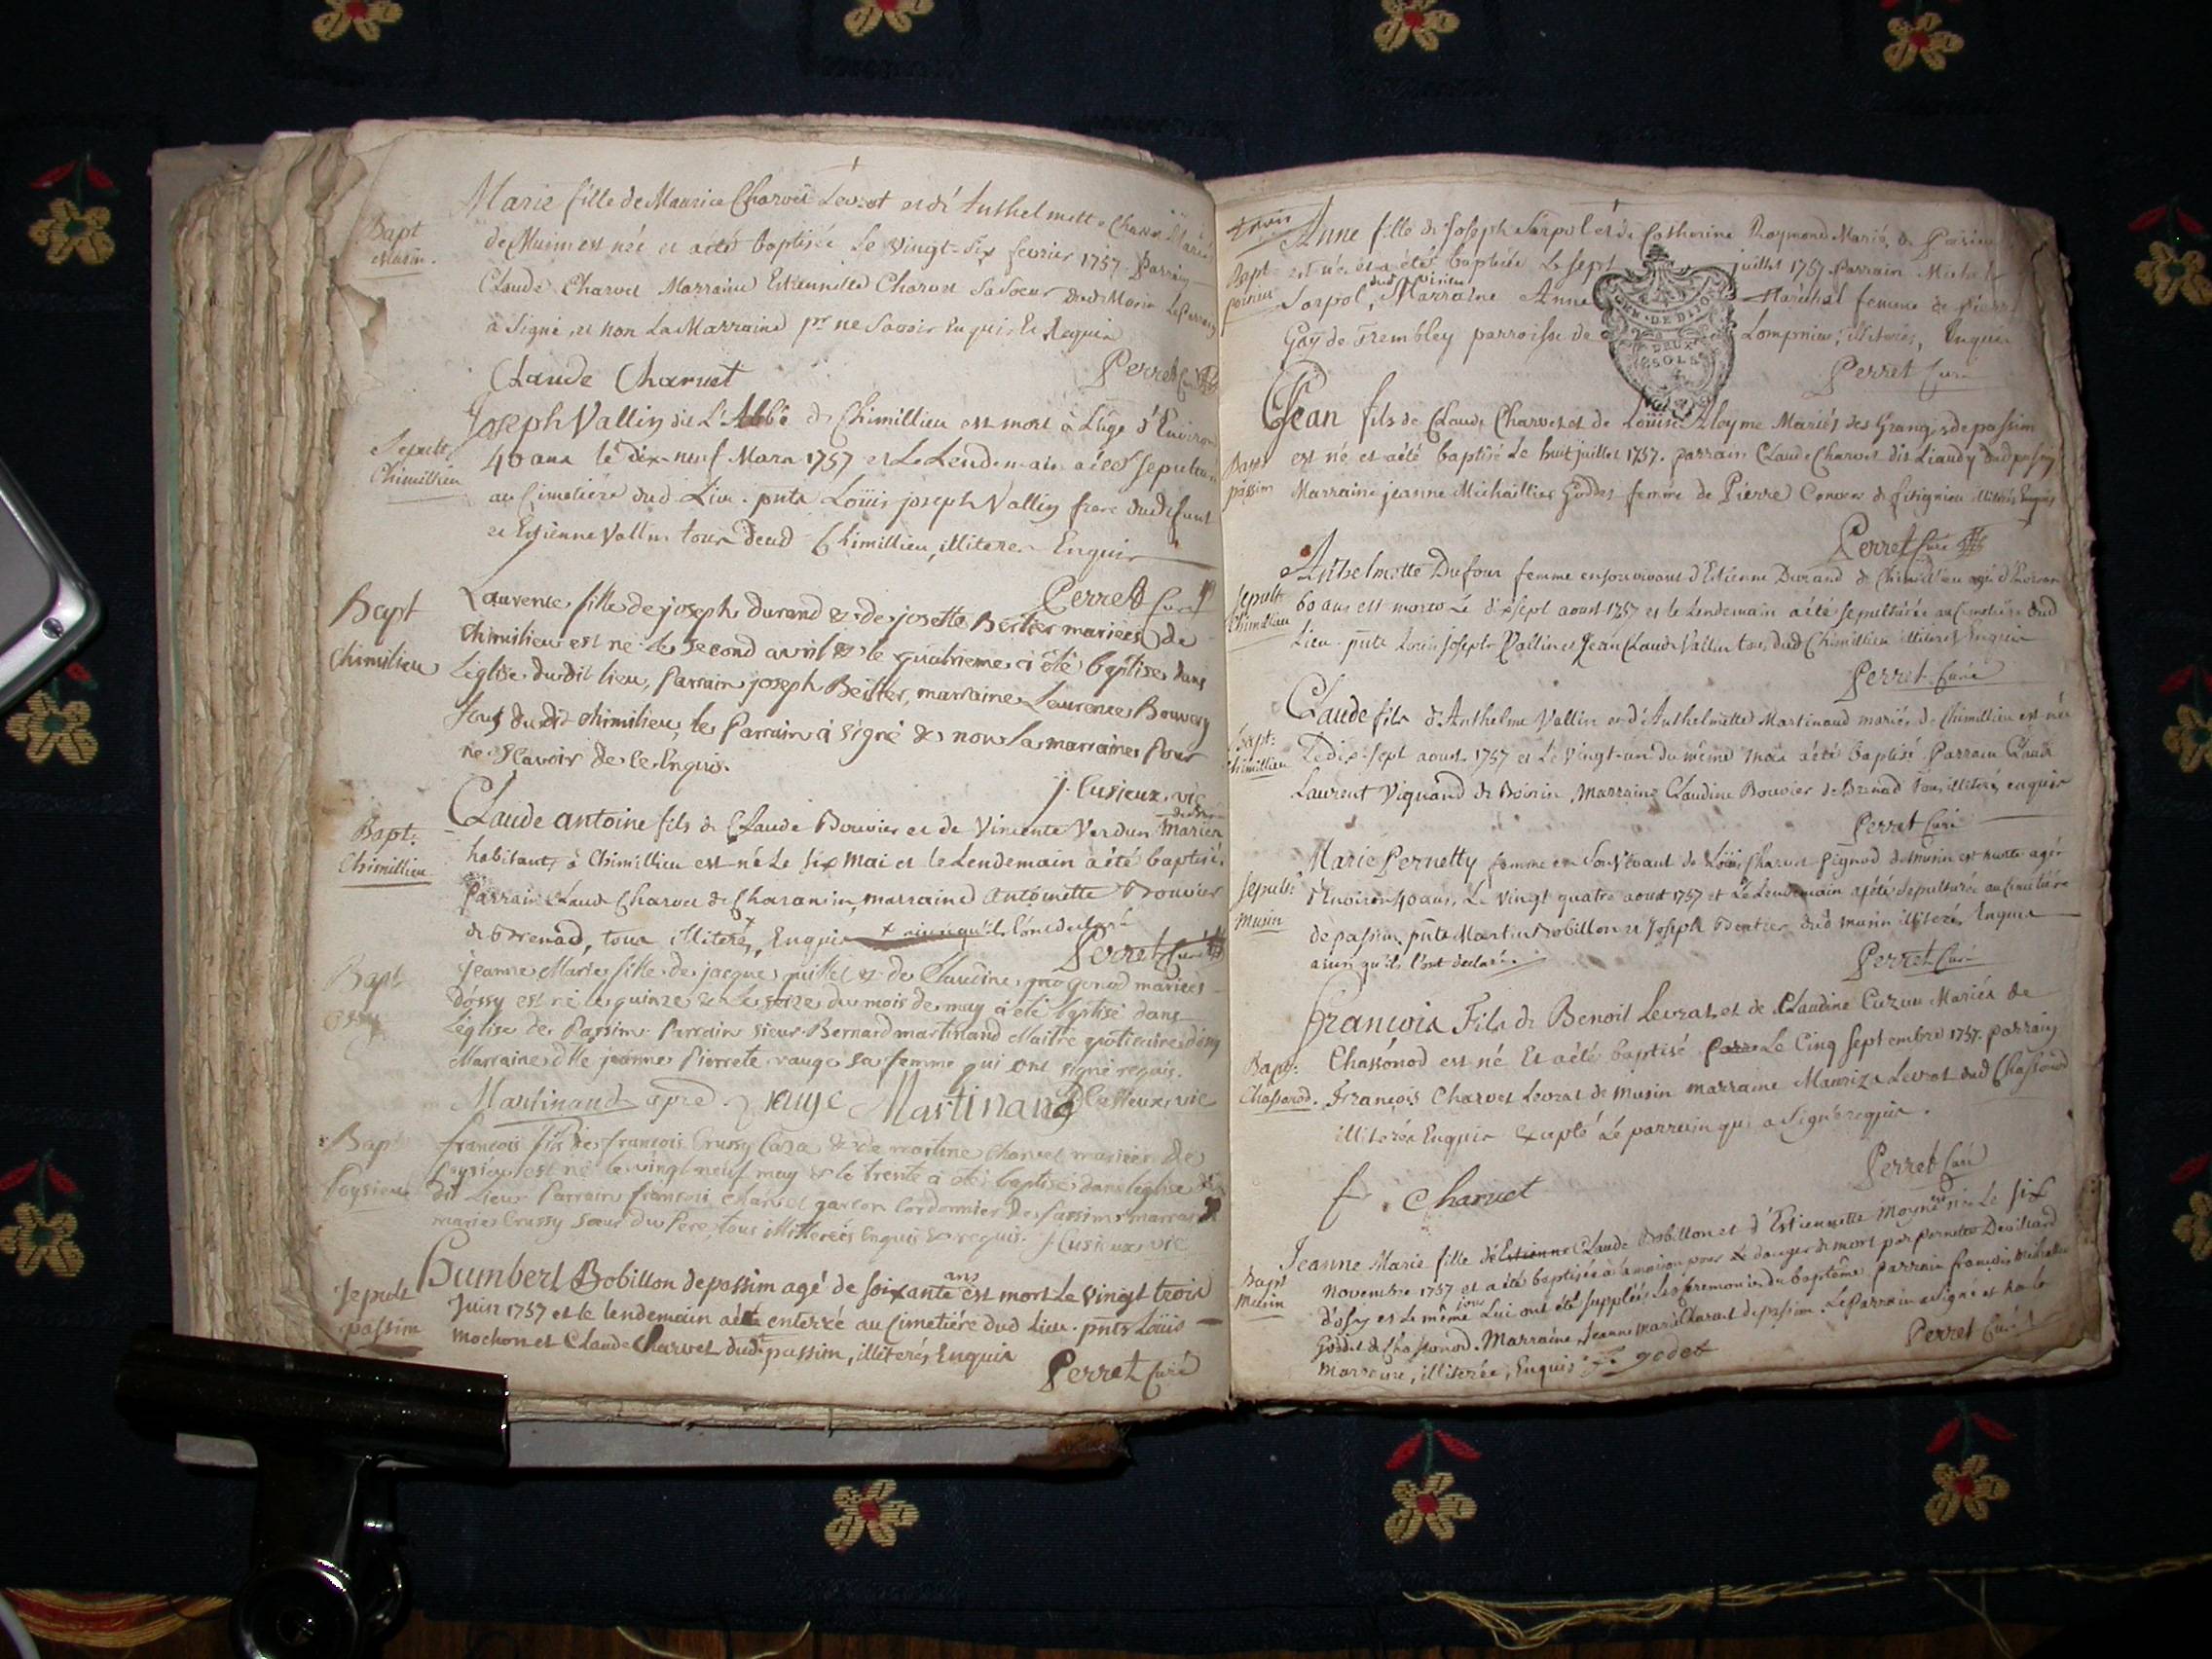 Marie fille de Maurice Charvet Levrot et d'Anthelmette Charvet Mariés
Bapt
Musin.
de Musin est née et a été baptisée le vingt-six fevrier 1757. Parrain
Claude Charvet Marraine Estiennette Charvet sa soeur dud Musin Le Parrain
a signé, et non La Marraine pr ne savoir Enquis Et Requis
Claude Charvet
Perret Curé
Joseph Vallin dit L'Abbé de Chimillieu est mort à L'âge d'Environ
Sepult
Chimillieu
40 ans le dix-neuf Mars 1757 et Le Lendemain a été sepulturé
au Cimetière dud Lieu. pnts Loüis joseph Vallin frere dud defunt
et Estienne Vallin tous deud Chimillieu, illiteres Enquis
Perret Curé
Bapt
Chimilieu
Laurence fille de joseph durand & de josette Bertier mariées de
Chimilieu est né le second avril & le quatrieme a été baptise dans
l'eglise dudit lieu, Parrain joseph Bertier, marraine Laurence Bouvery
tous dudit Chimilieu, le Parrain a signé & non la marraine pour
ne sçavoir de ce Enquis.
J. Cusieux, vic
Bapt:
Chimillieu
Claude antoine fils de Claude Bouvier et de Vincente Verdun Mariés
habitants à Chimillieu est né Le six Mai et le Lendemain a été baptisé.
Parrain Claude Charvet de Charancin, marraine Antoinette Bouvier
de Brenad, tous illiterés, Enquis x ainsi qu'ils l'ont declaré
Perret Curé
Bapt
Ossy
jeanne Marie fille de jacque quillet & de Claudine gros gonod mariées
d'ossy est né le quinze & le seize du mois de may a été baptisé dans
l'eglise de Passim Parrain sieur Bernard martinand Maitre apoticaire d'ossy
Marraine dlle jeanne Pierrete rauge sa femme qui ont signé requis.
Martinand apre. rauge Martinand J. Cusieux, vic
Bapt
Poysieu
françois fils de françois Crussy Caza & de martine Charvet mariées de
Poysieu est né le vingt neuf may & le trente a été baptisé dans l'eglise du
dit Lieu Parrain françois Charvet garçon Cordonnier de Passim marraine
marie Crussy sœur du Pere, tous illitterées Enquis & requis. J. Cusieux, vic
Sepult
passim
Humbert Bobillon de passim agé de soixante ans est mort Le vingt trois
Juin 1757 et le lendemain a été enterré au Cimetiére dud Lieu. pnts Loüis
Mochon et Claude Charvet dudt passim, illiterés Enquis
Perret Curé
Anne fille de Joseph Sarpol et de Catherine Raymond Mariés de Poirin
Bapt
poirin
est née et a été baptisée Le sept juillet 1757. Parrain Michel
Sarpol, dud poirin Marraine Anne Maréchal femme de Pierre
Gay de Trembley parroisse de Lompnieu, illiterés, Enquis
GEN. DE DIJON
DEUX
SOLS
Perret Curé
Jean fils de Claude Charvet et de Loüise Aloyme Mariés des Granges de passim
Bapt
passim
est né et a été baptisé Le huit juillet 1757. parrain Claude Charvet dit Liaudy dud passim
Marraine jeanne Michaillier Goddet femme de Pierre de fitignieu illiterés Enquis
Perret Curé
Anthelmette Dufour femme en son vivant d'Estienne Durand de Chimillieu agé d'Environ
Sepult
Chimillieu
60 ans est morte Le dix sept aoust 1757 et le lendemain a été sepulturée au Cimetiére dud
Lieu. pnts Loüis Joseph Vallin et Jean Claude Vallin tous dud Chimillieu illiterés Enquis
Perret Curé
Claude fils d'Anthelme Vallin et d'Anthelmette Martinand mariés de Chimillieu est né
Bapt:
Chimillieu
Le dix-sept aoust 1757 et Le vingt-un du même mois a été baptisé. Parrain Claude
Laurent Vignand de Poirin, Marraine Claudine Bouvier de Brenad tous illiterés, enquis
Perret Curé
Marie Pernetty femme en son vivant de Loüis Charvet Pignod de Musin est morte agée
Sepult:
Musin
d'Environ 40 ans, Le vingt quatre aoust 1757 et Le Lendemain a été sepulturée au Cimetiére
de passim, pnts Martin Bobillon et Joseph Bertier dud musin illiterés Enquis
ainsi qu'ils l'ont declaré.
Perret Curé
François Fils de Benoit Levrat et de Claudine Mariés de
Bapt:
Chassonod.
Chassonod est né Et a été baptisé Le Cinq septembre 1757. parrain
François Charvet Levrat de musin marraine Mauriza Levrat dud Chassonod
illiterés Enquis excepté Le parrain qui a signé requis.
f. Charvet
Perret Curé
Jeanne Marie fille de Estienne Claude Bobillon et d'Estiennette Moyne est née Le six
Bapt
Musin
Novembre 1757 et a été baptisée à la maison pour Le danger de mort par pernette Devillard
d'ossy et Le même jour Lui ont été suppléés Les ceremonies du baptême parrain françois Michaillier
Goddet de Chassonod. Marraine, Jeanne Marie Charvet de passim. Le Parrain a signé et non la
Marraine, illiterée, Enquis. F. godet
Perret Curé